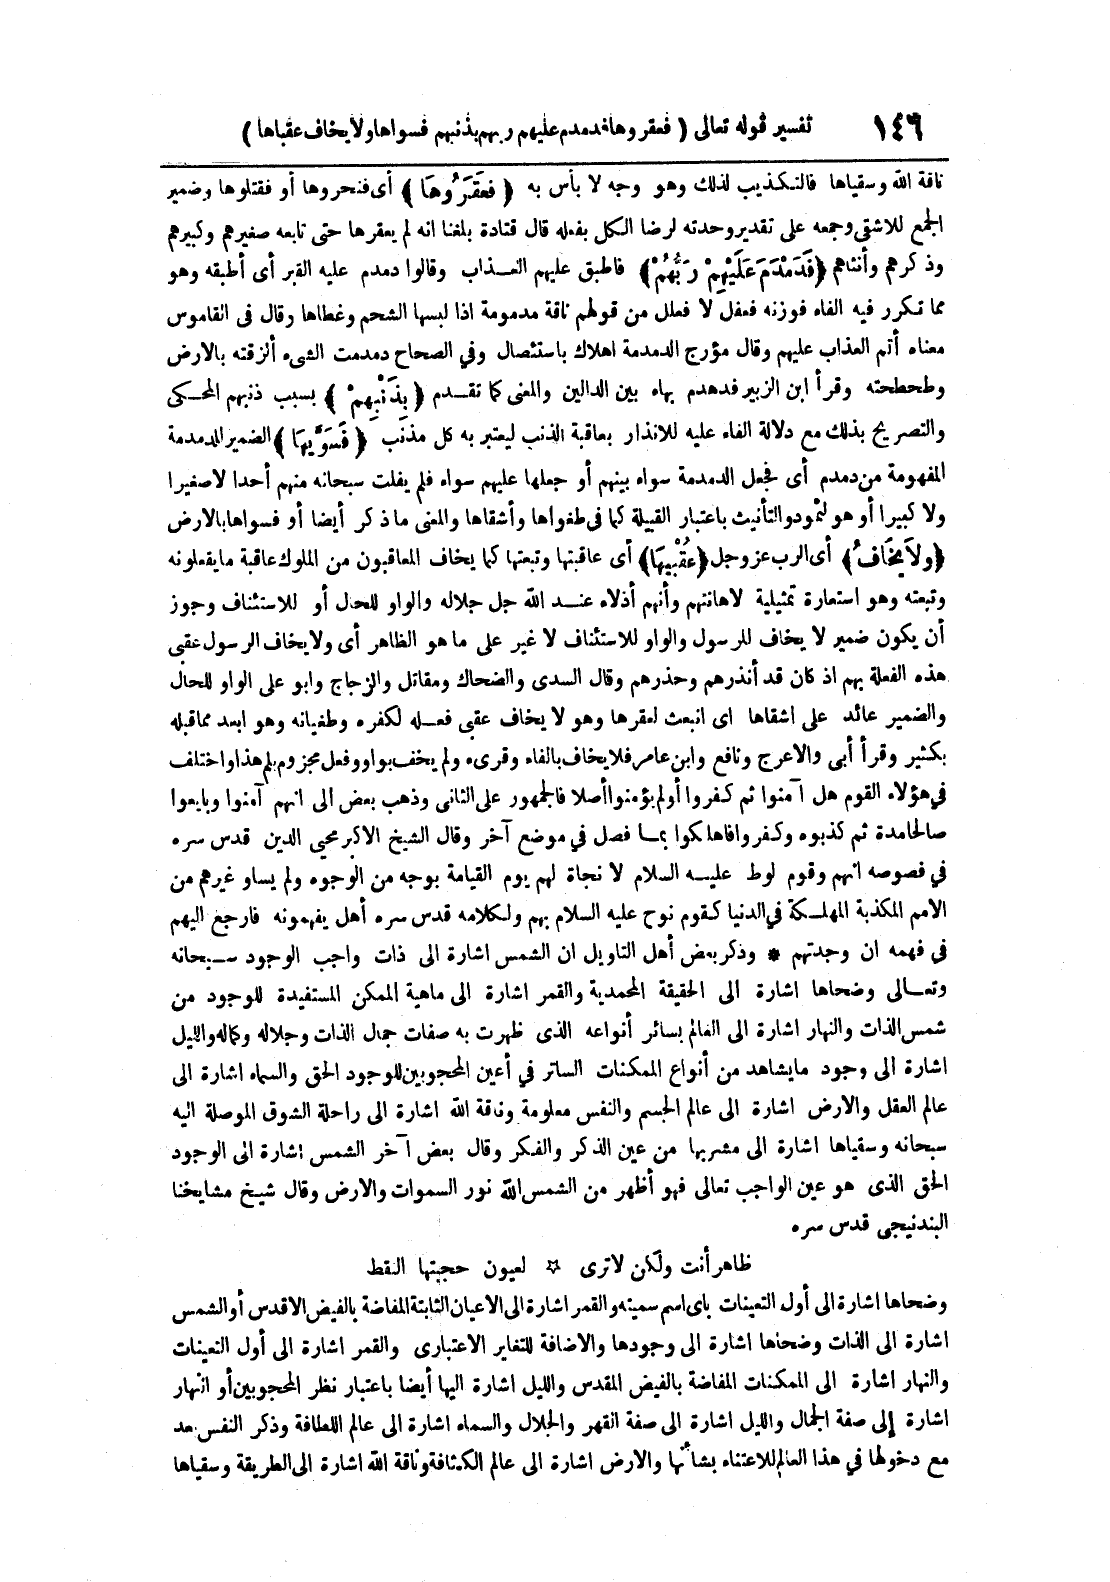 ١٤٦ تفسير قوله تعالى ( فعقروها فدمدم عليهم ربهم بذنبهم فسواها ولا يخاف عقباها )
ناقة الله وسقياها فالتكذيب لذلك وهو وجه لا بأس به ﴿ فَعَقَرُوهَا ﴾ أى فنحروها أو فقتلوها وضمير
الجمع للاشقى وجمعه على تقدير وحدته لرضا الكل بفعله قال قتادة بلغنا انه لم يعقرها حتى تابعه صغيرهم وكبيرهم
وذكرهم وأنثاهم ﴿ فَدَمْدَمَ عَلَيْهِمْ رَبُّهُمْ ﴾ فاطبق عليهم العــذاب وقالوا دمدم عليه القبر أى أطبقه وهو
مما تكرر فيه الفاء فوزنه فعفل لا فعلل من قولهم ناقة مدمومة اذا لبسها الشحم وغطاها وقال فى القاموس
معناه أتم العذاب عليهم وقال مؤرج الدمدمة اهلاك باستئصال وفي الصحاح دمدمت الشىء ألزقته بالارض
وطحطحته وقرأ ابن الزبير فدهدم بهاء بين الدالين والمعنى كما تقــدم ﴿ بِذَنْبِهِمْ ﴾ بسبب ذنبهم المحــكى
والتصريح بذلك مع دلالة الفاء عليه للانذار بعاقبة الذنب ليعتبر به كل مذنب ﴿ فَسَوَّيهَا ﴾ الضمير للدمدمة
المفهومة من دمدم أى فجعل الدمدمة سواء بينهم أو جعلها عليهم سواء فلم يفلت سبحانه منهم أحدا لاصغيرا
ولا كبيرا أو هو لثمود والتأنيث باعتبار القبيلة كما فى طغواها وأشقاها والمعنى ما ذكر أيضا أو فسواها بالارض
﴿ ولاَ يَخَافُ ﴾ أى الرب عز وجل ﴿ عُقْبيهَا ﴾ أى عاقبتها وتبعتها كما يخاف المعاقبون من الملوك عاقبة ما يفعلونه
وتبعته وهو استعارة تمثيلية لاهانتهم وأنهم أذلاء عنــد الله جل جلاله والواو للحال أو للاستئناف وجوز
أن يكون ضمير لا يخاف للرسول والواو للاستئناف لا غير على ما هو الظاهر أى ولا يخاف الرسول عقبى
هذه الفعلة بهم اذ كان قد أنذرهم وحذرهم وقال السدى والضحاك ومقاتل والزجاج وابو على الواو للحال
والضمير عائد على اشقاها اى انبعث لعقرها وهو لا يخاف عقبى فعــله لكفره وطغيانه وهو ابعد مما قبله
بكثير وقرأ أبى والاعرج ونافع وابن عامر فلا يخاف بالفاء وقرىء ولم يخف بواو وفعل مجزوم بلم هذا واختلف
فى هؤلاء القوم هل آمنوا ثم كفروا أو لم يؤمنوا أصلا فالجمهور على الثانى وذهب بعض الى انهم آمنوا وبايعوا
صالحا مدة ثم كذبوه وكفروا فاهلكوا بمـا فصل في موضع آخر وقال الشيخ الاكبر محيى الدين قدس سره
في فصوصه انهم وقوم لوط عليــه السلام لا نجاة لهم يوم القيامة بوجه من الوجوه ولم يساو غيرهم من
الامم المكذبة المهلــكة في الدنيا كقوم نوح عليه السلام بهم ولكلامه قدس سره أهل يفهمونه فارجع اليهم
في فهمه ان وجدتهم * وذكر بعض أهل التاويل ان الشمس اشارة الى ذات واجب الوجود ســبحانه
وتعــالى وضحاها اشارة الى الحقيقة المحمدية والقمر اشارة الى ماهية الممكن المستفيدة للوجود من
شمس الذات والنهار اشارة الى العالم بسائر أنواعه الذى ظهرت به صفات جمال الذات وجلاله وكماله والليل
اشارة الى وجود ما يشاهد من أنواع الممكنات الساتر في أعين المحجوبين للوجود الحق والسماء اشارة الى
عالم العقل والارض اشارة الى عالم الجسم والنفس معلومة وناقة الله اشارة الى راحلة الشوق الموصلة اليه
سبحانه وسقياها اشارة الى مشربها من عين الذكر والفكر وقال بعض آخر الشمس اشارة الى الوجود
الحق الذى هو عين الواجب تعالى فهو أظهر من الشمس الله نور السموات والارض وقال شيخ مشايخنا
البندنيجى قدس سره
ظاهر أنت ولكن لا ترى ☆ لعيون حجبتها النقط
وضحاها اشارة الى أول التعينات باى اسم سميته والقمر اشارة الى الاعيان الثابتة المفاضة بالفيض الاقدس أو الشمس
اشارة الى الذات وضحاها اشارة الى وجودها والاضافة للتغاير الاعتبارى والقمر اشارة الى أول التعينات
والنهار اشارة الى الممكنات المفاضة بالفيض المقدس والليل اشارة اليها أيضا باعتبار نظر المحجوبين أو النهار
اشارة إلى صفة الجمال والليل اشارة الى صفة القهر والجلال والسماء اشارة الى عالم اللطافة وذكر النفس بعد
مع دخولها في هذا العالم للاعتناء بشأنها والارض اشارة الى عالم الكثافة وناقة الله اشارة الى الطريقة وسقياها